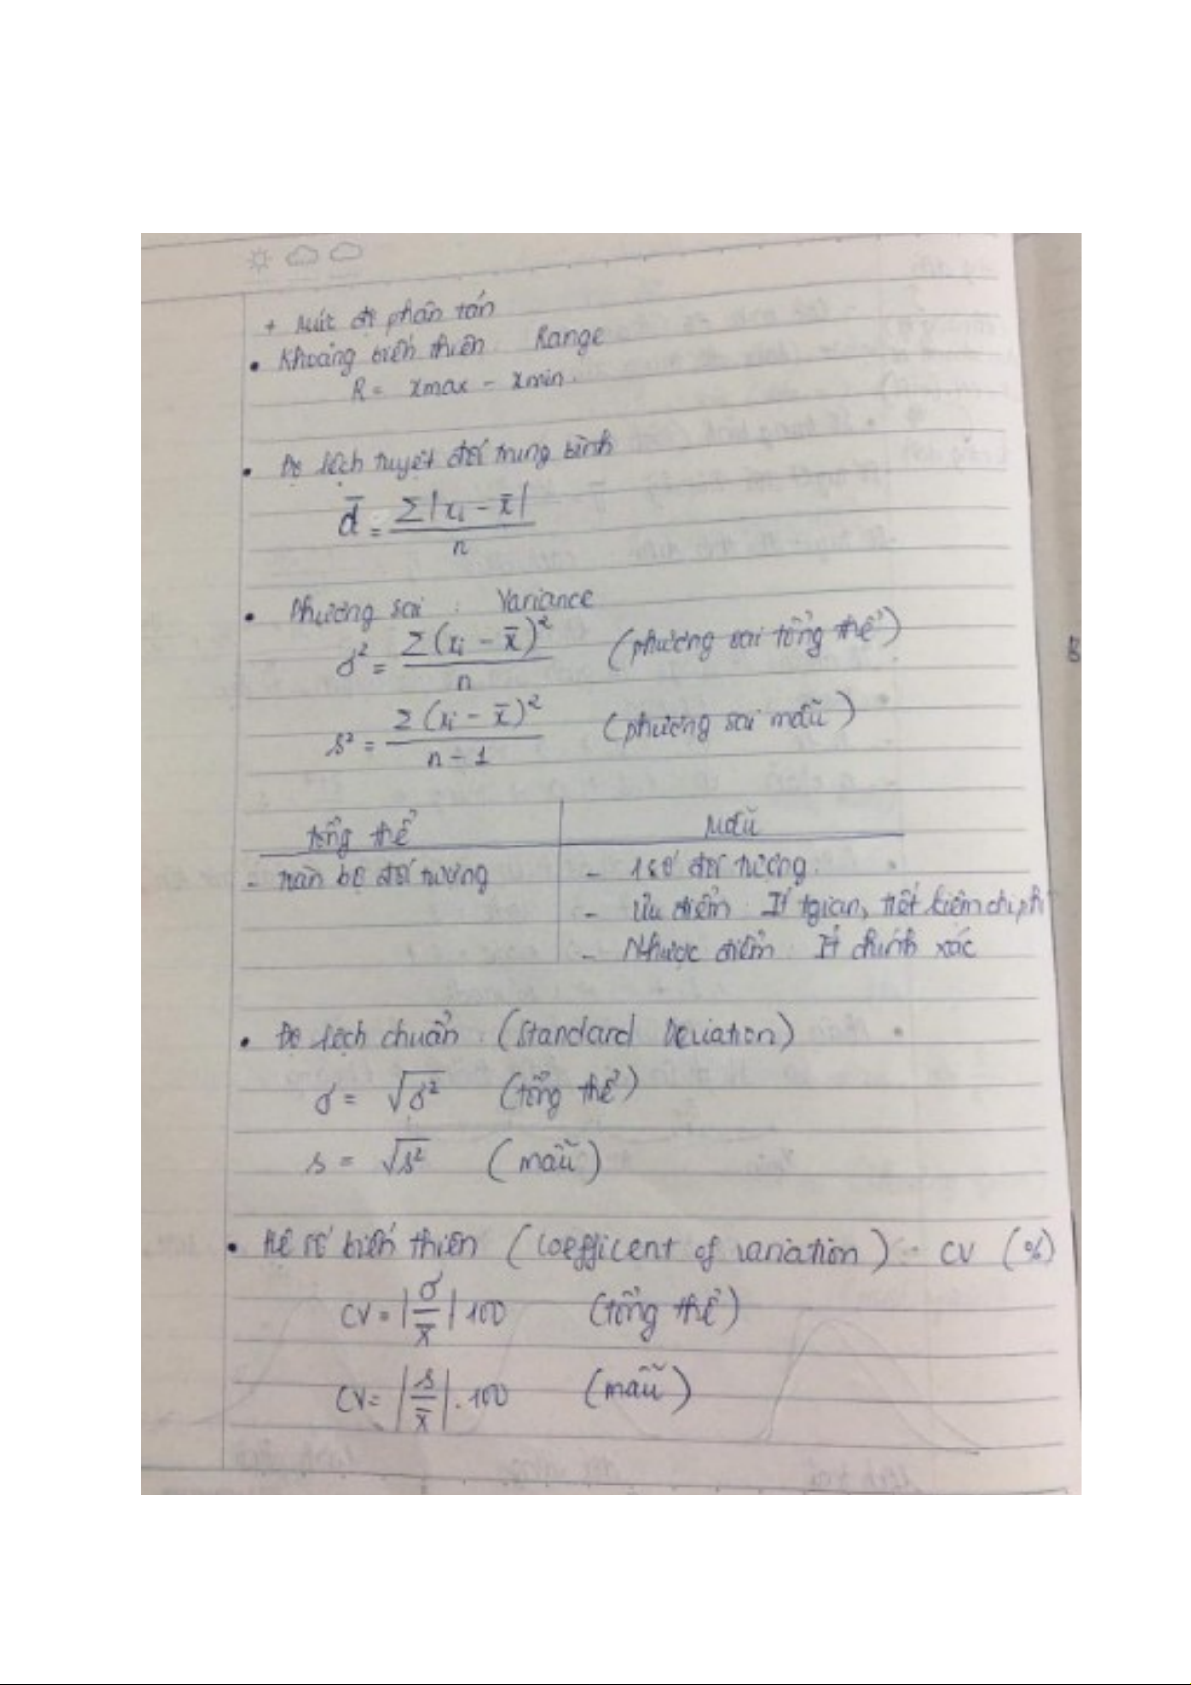 + Mức độ phân tán
• Khoảng biến thiên : Range
R = xmax - xmin.
• Độ lệch tuyệt đối trung bình
d̄ = Σ|xi - x̄| / n
• Phương sai : Variance
σ² = Σ(xi - x̄)² / n (phương sai tổng thể)
s² = Σ(xi - x̄)² / n - 1 (phương sai mẫu)
tổng thể | Mẫu
- toàn bộ đối tượng | - 1 số đối tượng.
- Ưu điểm : Ít tgian, tiết kiệm chi phí
- Nhược điểm : Ít chính xác
• Độ lệch chuẩn : (Standard Deviation)
σ = √σ² (tổng thể)
s = √s² (mẫu)
• Hệ số biến thiên (Coefficent of variation) - CV (%)
CV = |σ / x̄| 100 (tổng thể)
CV = |s / x̄| . 100 (mẫu)